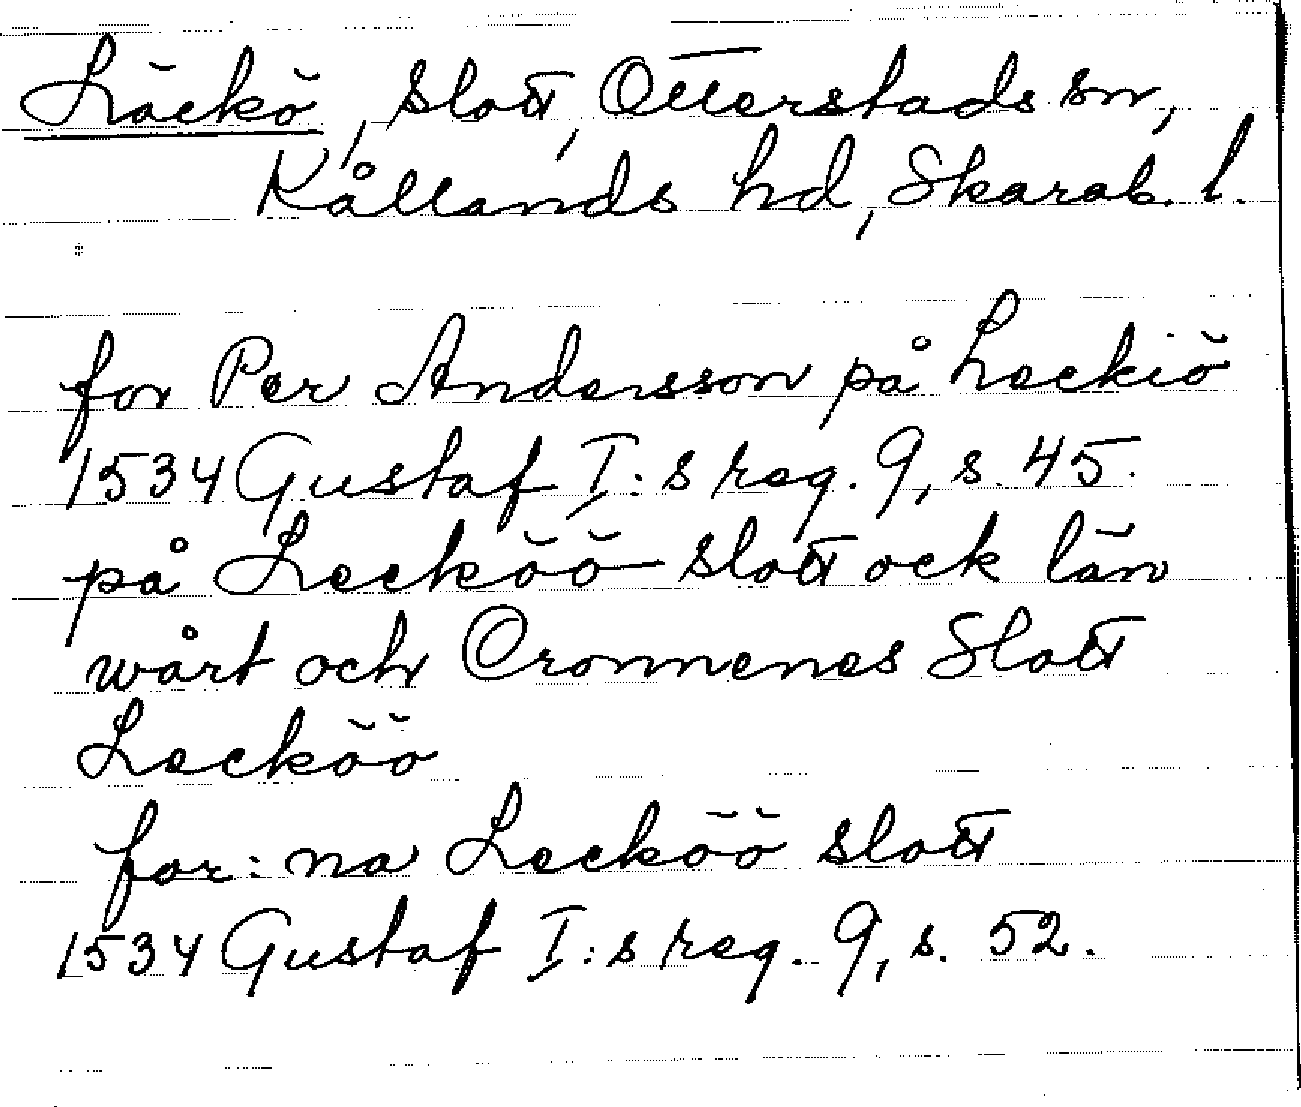 Läckö, slott, Otterstads sn,
Kållands hd, Skarab. l.
for Per Andersson på Leckiö
1534 Gustaf I:s reg. 9, s. 45.
på Lecköö slott ock län
wårt och Cronnenes Slott
Lecköö
for:na Lecköö slott
1534 Gustaf I:s reg. 9, s. 52.